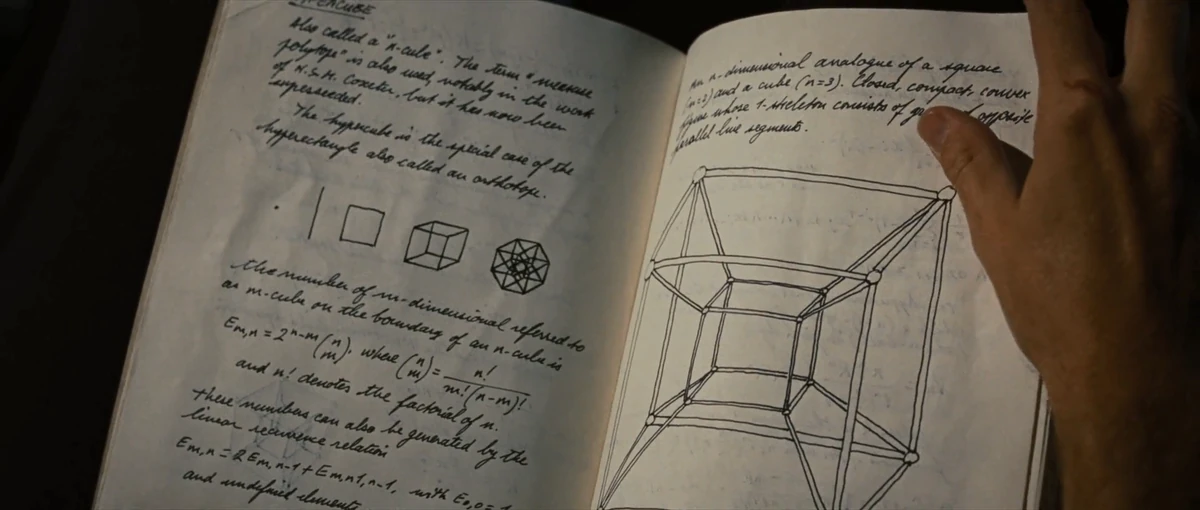 Also called a "n-cube". The term "measure
polytope" is also used, notably in the work
of H.S.M. Coxeter, but it has now been
superseded.
The hypercube is the special case of the
hyperrectangle also called an orthotope.
the number of m-dimensional referred to
as m-cube on the boundary of an n-cube is
E_{m,n} = 2^{n-m} (n m), where (n m) = n! / m!(n-m)!
and n! denotes the factorial of n.
These numbers can also be generated by the
linear recurrence relation
E_{m,n} = 2E_{m,n-1} + E_{m-1,n-1}, with E_{0,0} =
and undefined elements
An n-dimensional analogue of a square
(n=2) and a cube (n=3). Closed, compact, convex
figure whose 1-skeleton consists of opposite
parallel line segments.